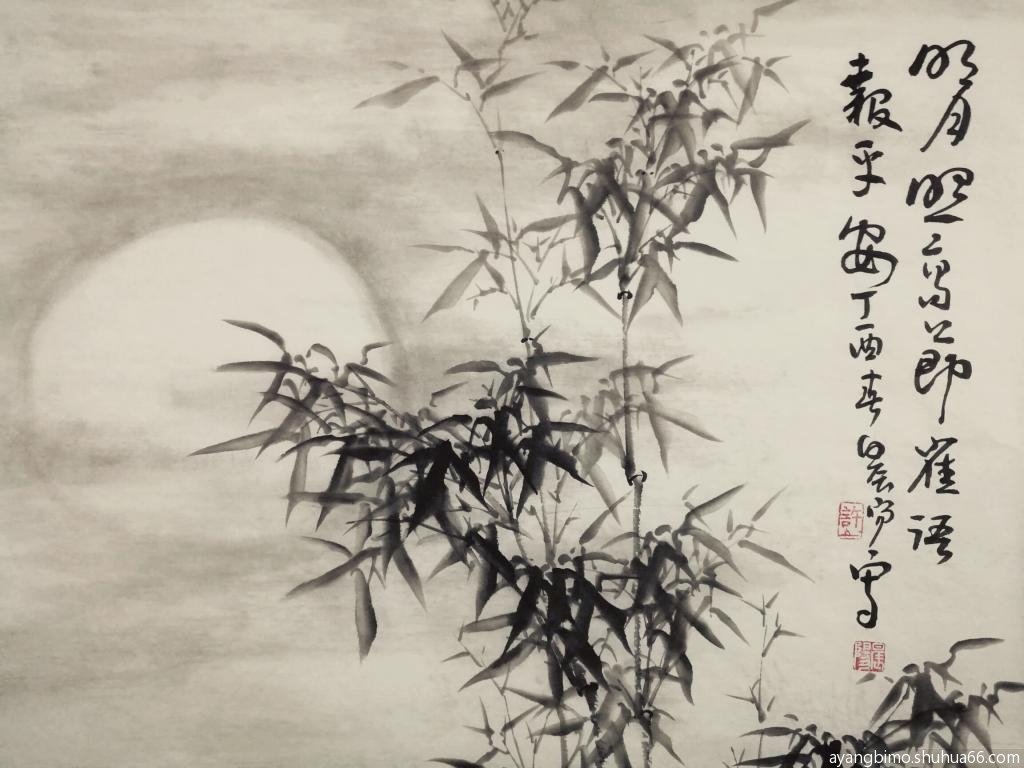 明月照高節雀語
報平安丁酉春日晨寫
許
ayangbimo.shuhua66.com